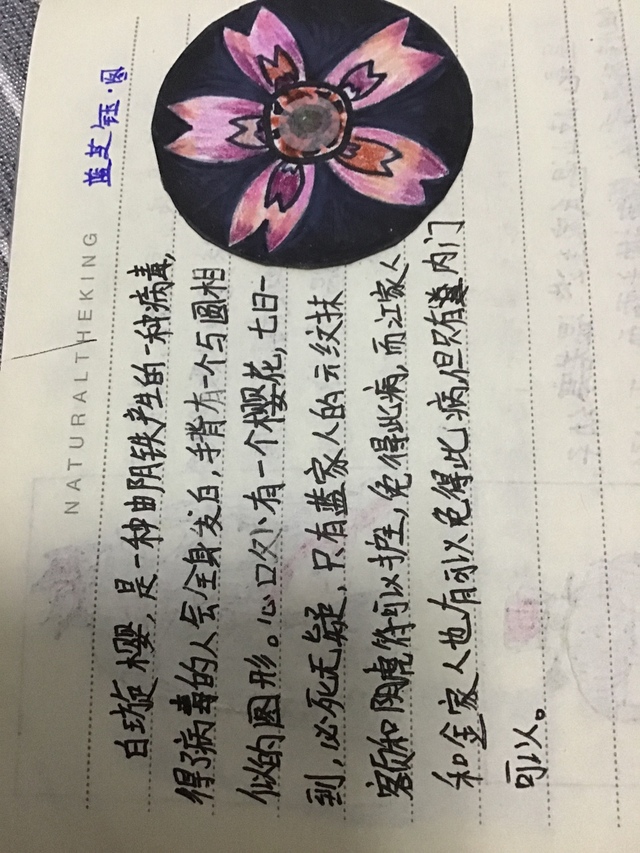 蓝芝钰·图
NATURALTHEKING
白璇樱,是一种由阴铁产生的一种病毒,
得了病毒的人会全身发白,手背有一个与圆相
似的圆形。心口处有一个樱花,七日一
到,必死无疑,只有蓝家人的云纹抹
额和阴虎符可以护住,免得此病,而江家人
和金家人也有可以免得此病,但只有内门
可以。